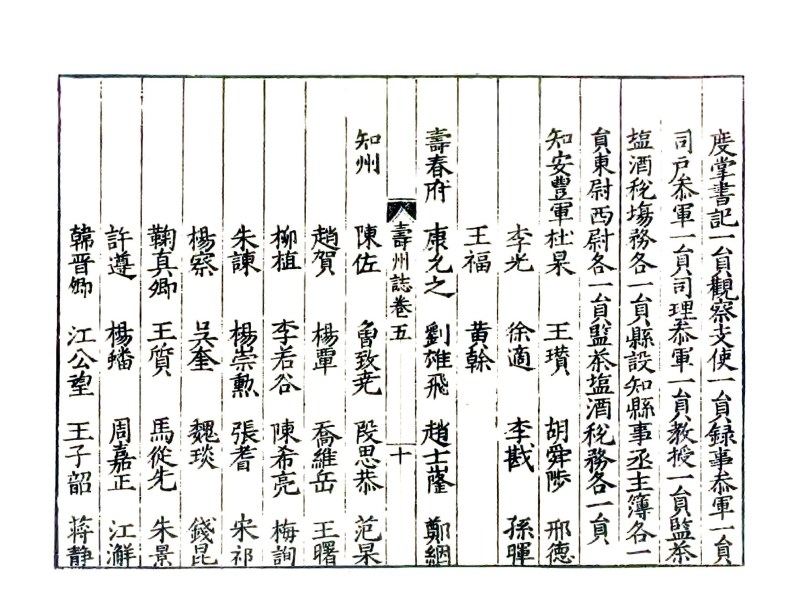 度掌書記一員觀察支使一員録事叅軍一員
司戸叅軍一員司理叅軍一員教授一員監茶
塩酒稅塲務各一員縣設知縣事丞主簿各一
員東尉西尉各一員監茶塩酒稅務各一員
知安豐軍 杜杲 王瓚 胡舜陟 邢德
李光 徐適 李戡 孫暉
王福 黄榦
壽春府 康允之 劉雄飛 趙士㠓 鄭綱
壽州誌卷五 十
知州 陳佐 魯致尭 段思恭 范杲
趙賀 楊覃 喬維岳 王曙
柳植 李若谷 陳希亮 梅詢
朱諫 楊崇勲 張耆 宋祁
楊察 吳奎 魏琰 錢昆
鞠真卿 王質 馬從先 朱景
許遵 楊蟠 周嘉正 江澥
韓晋卿 江公望 王子韶 蒋静